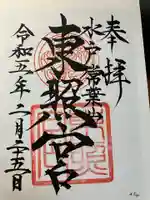 奉拝
水戸 常葉山
東照宮
令和五年 二月二十五日